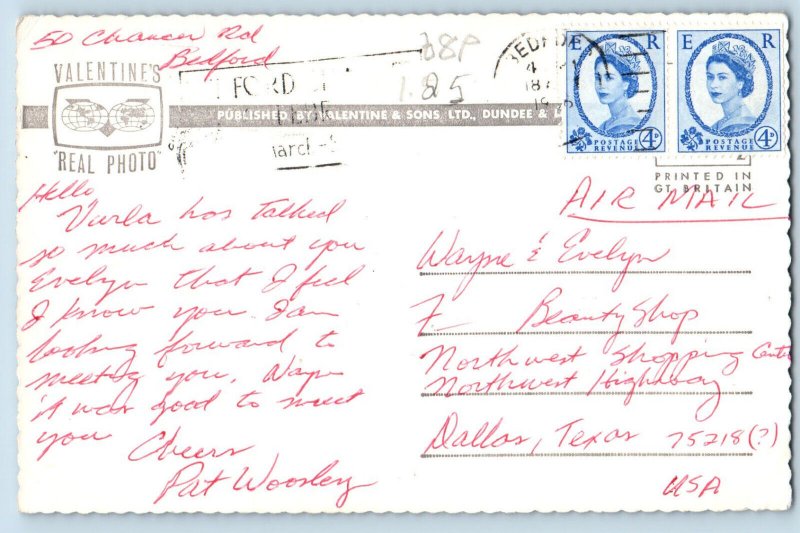 50 Chaucer Rd
Bedford
VALENTINE'S
"REAL PHOTO"
PUBLISHED BY VALENTINE & SONS, LTD., DUNDEE &
FORD
arch
BEDFO
4
18
19
88P
1.25
E R
POSTAGE
REVENUE
4D
E R
POSTAGE
REVENUE
4D
PRINTED IN
GT. BRITAIN
AIR MAIL
Hello
Verla has talked
so much about you
Evelyn that I feel
I know you. I am
looking forward to
meeting you, Wayne
it was good to meet
you
Cheers
Pat Woosley
Wayne & Evelyn
7— Beauty Shop
Northwest Shopping Center
Northwest Highway
Dallas, Texas 75218(?)
USA